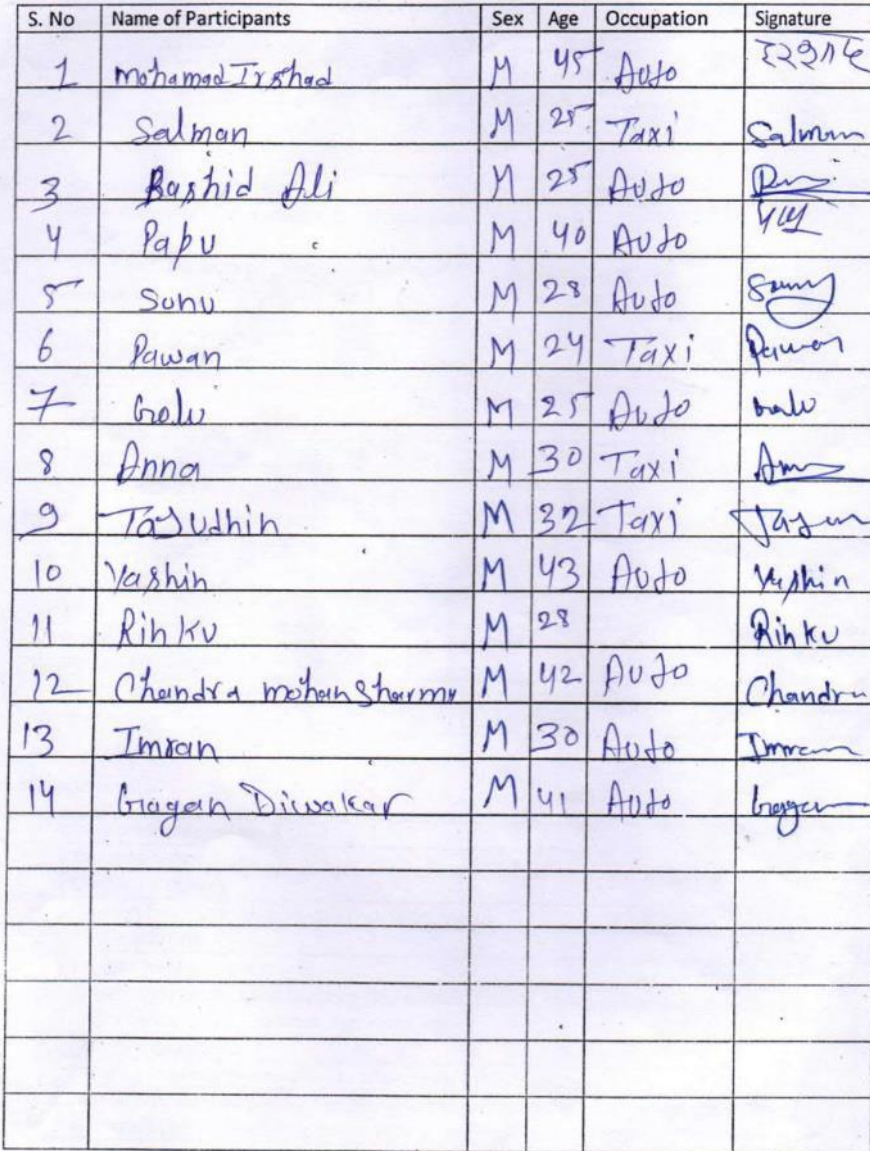 S. No Name of Participants Sex Age Occupation Signature
1 Mohamad Irshad M 45 Auto इरशाद
2 Salman M 25 Taxi Salman
3 Rashid Ali M 25 Auto
4 Papu M 40 Auto
5 Sunu M 28 Auto
6 Pawan M 24 Taxi Pawan
7 Golu M 25 Auto Golu
8 Anna M 30 Taxi
9 Tajudhin M 32 Taxi
10 Yashin M 43 Auto Yashin
11 Rinku M 28 Rinku
12 Chandra mohan Sharma M 42 Auto Chandra
13 Imran M 30 Auto Imran
14 Gagan Diwakar M 41 Auto Gagan